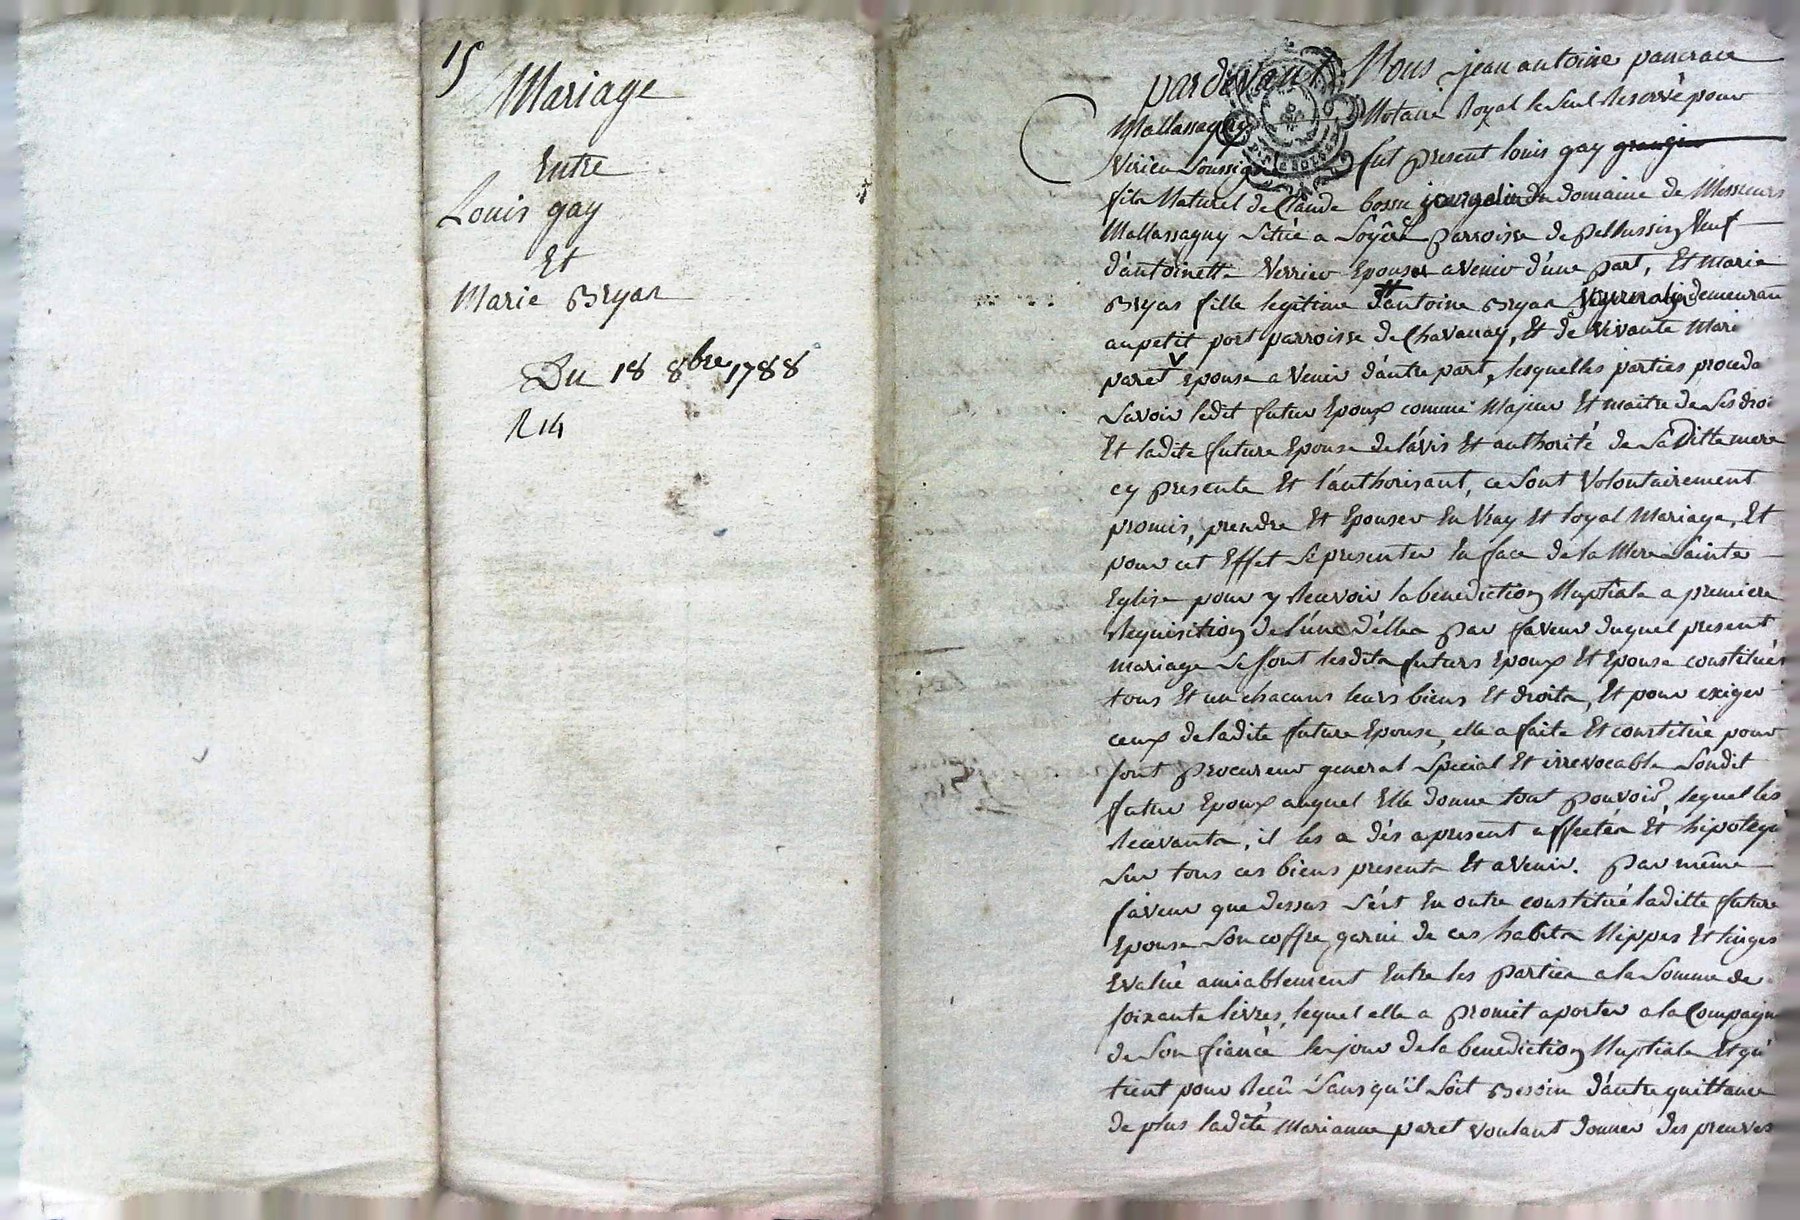 15
Mariage
Entre
Louis gay
Et
Marie Bryas
Du 18 8bre 1788
R 14
pardevant Nous jean antoine pancrace
Mallassagny Notaire Royal le seul Reservé pour
Virieu soussigné fut present louis gay granger
fils Naturel de Claude bosse journalier du domaine de Messieurs
Mallassagny située a Soyére parroisse de pellussin, veuf
d'antoinette Verrieu Epoux avenir d'une part, Et marie
Bryas fille legitime d'antoine Bryas vigneron demeurant
au petit port parroisse de Chavanay, Et de vivante Marie
paret epouse avenir d'autre part, lesquelles parties proceda
savoir ledit futur Epoux comme Majeur Et maitre de ses droi
Et ladite future Epouse de l'avis Et authorité de sa ditte mere
cy presente Et l'authorisant, ce sont volontairement
promis, prendre Et Epouser En vray Et loyal Mariage, Et
pour cet Effet se presenter En face de la Mere sainte
Eglise pour y Recevoir la benediction Nuptiale a premiere
Requisition de l'une d'elles par faveur duquel present
mariage se sont lesdits futurs Epoux Et Epouse constitués
tous Et un chacuns leurs biens Et droits, Et pour exiger
ceux de ladite future Epouse, elle a faite Et constitué pour
sont procureur general special Et irrevocable sondit
futur Epoux auquel Elle donne tout pouvoir, lequel les
Recevants, il les a dés apresent affectés Et hipotequé
sur tous ces biens presents Et avenir. par même
faveur que dessus s'ést En outre constitué laditte future
Epouse son coffre, garni de ces habits Nippes Et linges
Evalué amiablement Entre les parties a la somme de
soixante livres, lequel elle a promit aporter a la Compagn
de son fiancé le jour de la benediction Nuptiale Et qu'
tient pour Recû sans qu'il soit Besoin d'autre quittance
de plus ladite Marianne paret voulant donner des preuves